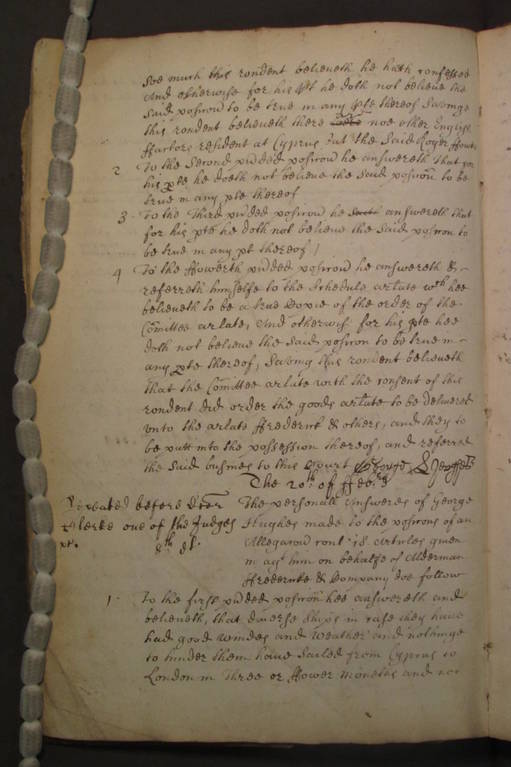 soe much this rondent believeth he hath confessed
And otherwise for his pt he doth not believe the
said posicon to be true in any pte thereof Saving
this rondent believeth there noe other English
ffactors resident at Cyprus but the said Roger
2 To the second pided posicon he answereth that for
his pte he doeth not believe the said posicon to be
true in any pte thereof
3 To the Third pided posicon he answereth that
for his pte he doth not believe the said posicon to
be true in any pt thereof /
4 To the ffowerth pided posicon he answereth &
referreth himselfe to the Schedule arlate wch hee
believeth to be a true Copie of the order of the
Comittee arlate, And otherwise for his pte hee
doth not believe the said posicon to be true in
any pte thereof, Saving this rondent believeth
that the Comittee arlate with the consent of this
rondent did order the goods arlate to be delivered
unto the arlate ffrederick & others, and they to
be putt into the possession thereof, and referred
the said busines to this Court George
The 20th of Feb:
Repeated before Dcor The personall Answeres of George
Clerke one of the Judges Hughes made to the posicons of an
Allegacon cont 18 Articles given
in agt him on behalfe of Alderman
ffredericke & Company doe follow
1 To the first pided posicon hee answereth and
believeth, that diverse ships in case they have
had good windes and weather and nothinge
to hinder them have sailed from Cyprus to
London in Three or ffower Moneths and not